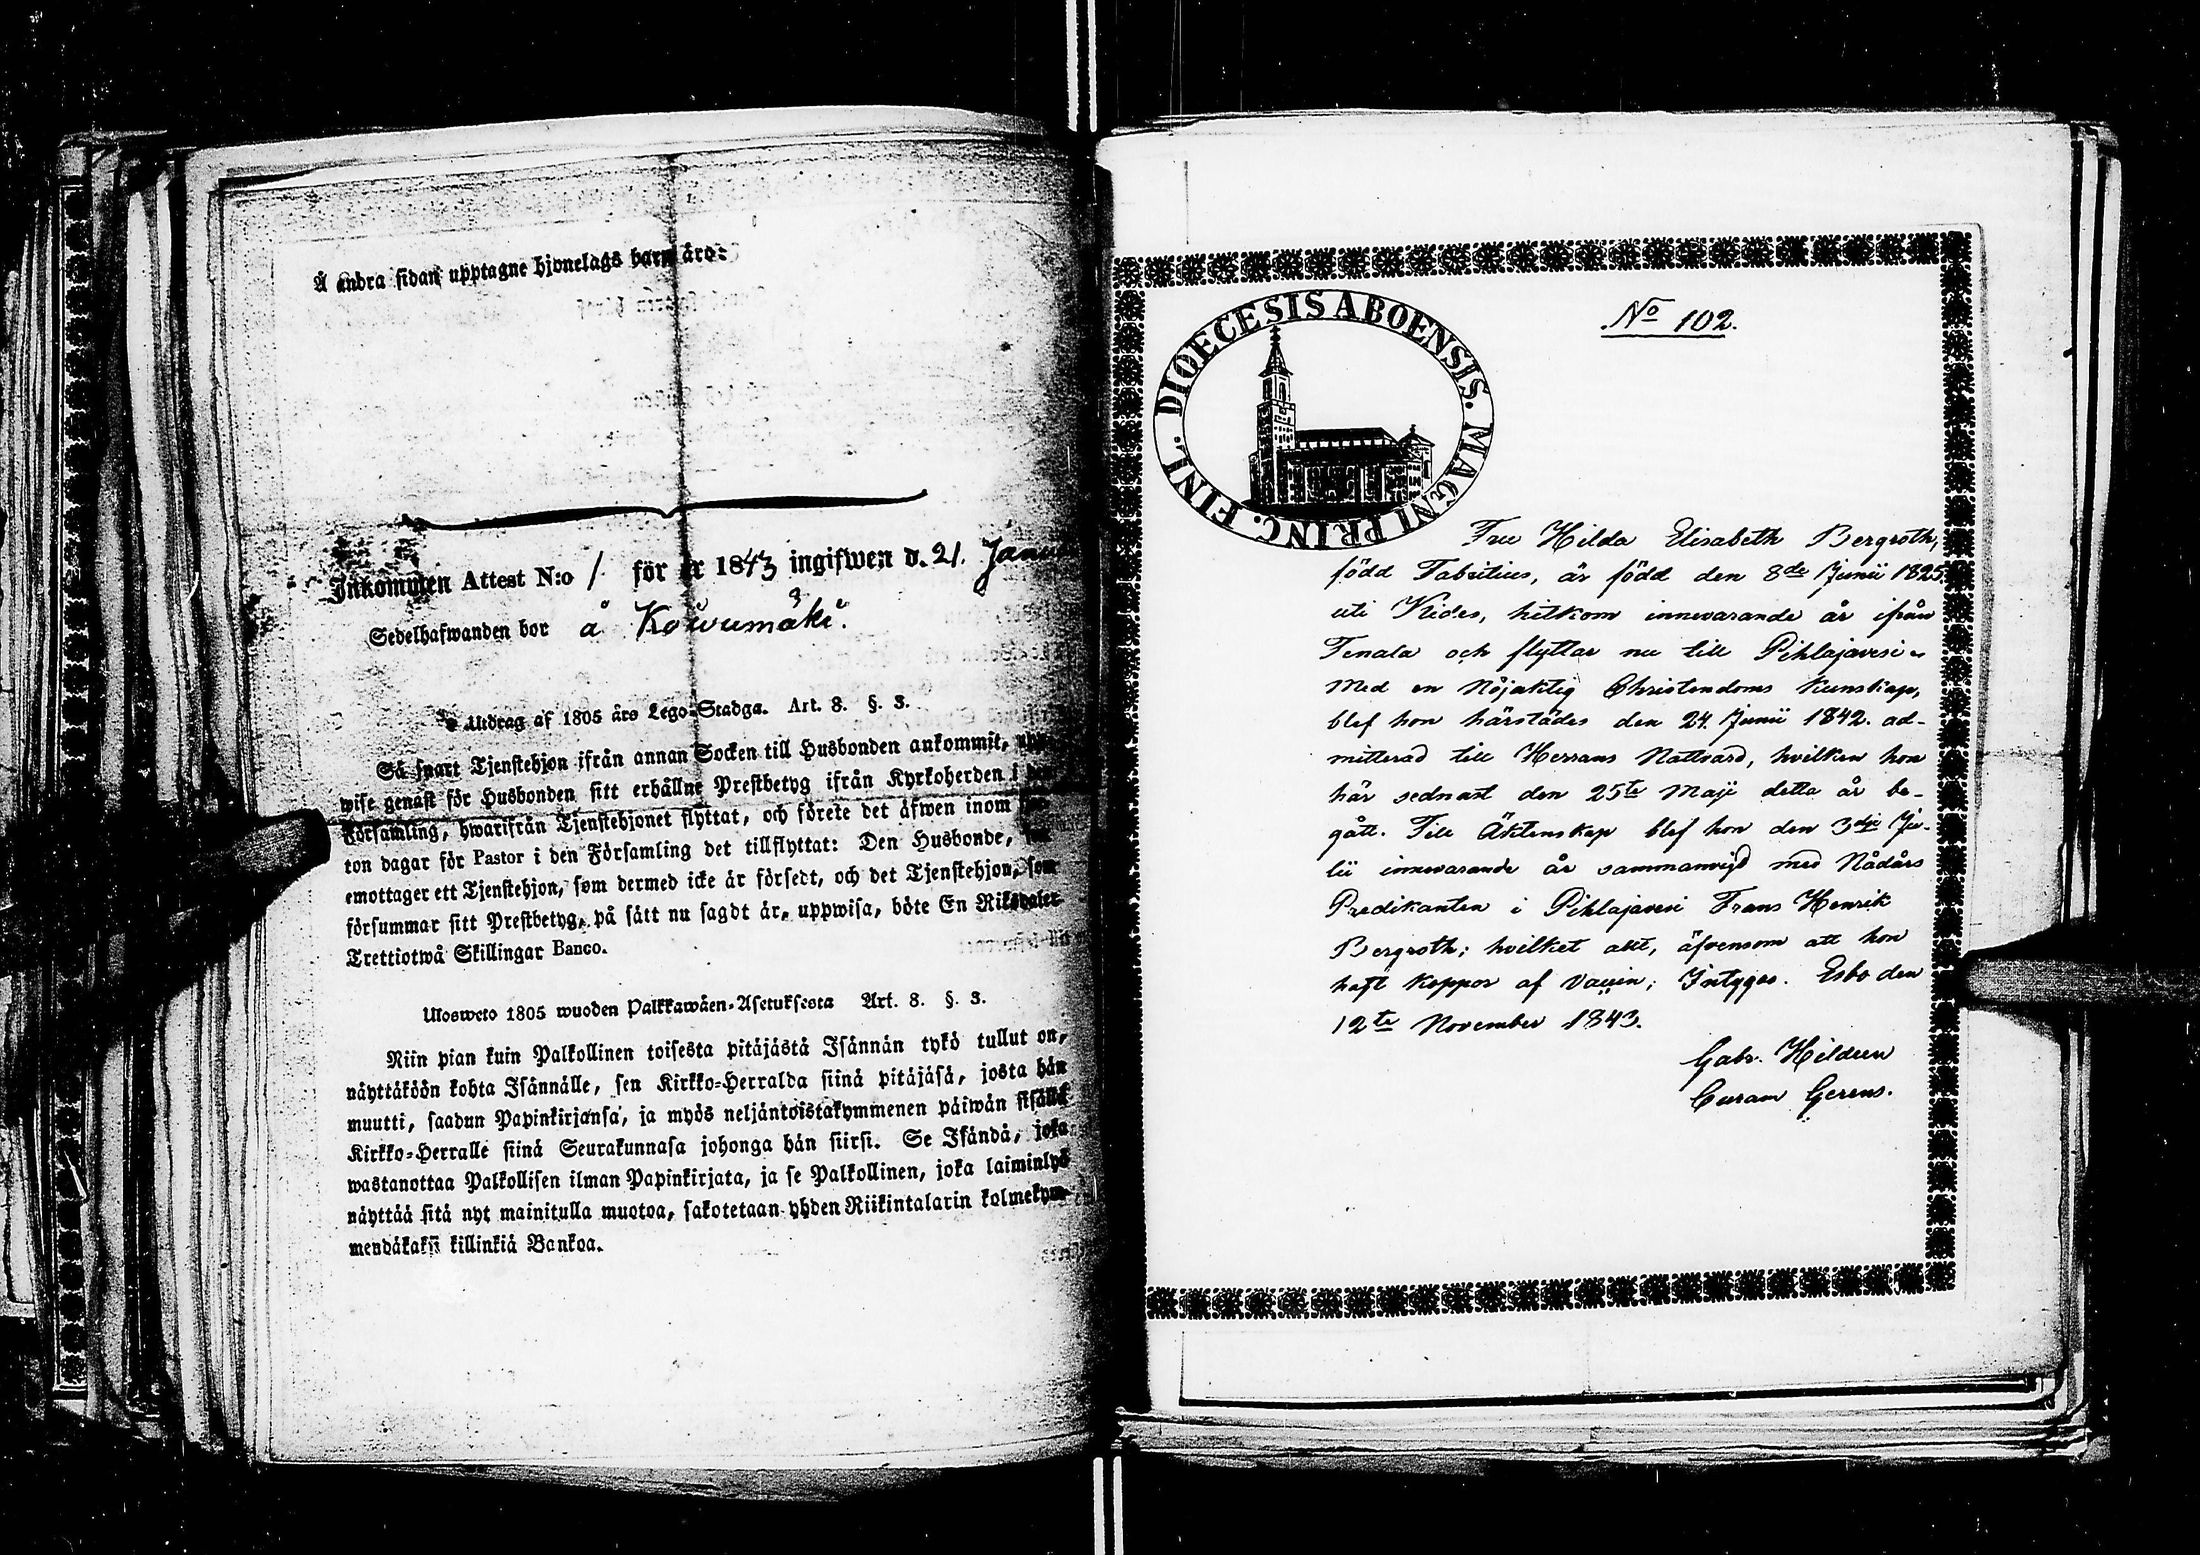 Å andra sidan upptagne hjonelags barn äro:
Inkommen Attest N:o 1 för år 1843 ingifwen d. 21.
Sedelhafwanden bor å Koiwumäki.
Utdrag af 1805 års Lego-Stadga. Art. 8. §. 3.
Så snart Tjenstehjon ifrån annan Socken till Husbonden ankommit,
wise genast för Husbonden sitt erhållne Prestbetyg ifrån Kyrkoherden i
Församling, hwarifrån Tjenstehjonet flyttat, och förete det äfwen inom
ton dagar för Pastor i den Församling det tillflyttat: Den Husbonde,
emottager ett Tjenstehjon, som dermed icke är försedt, och det Tjenstehjon, som
försummar sitt Prestbetyg, på sätt nu sagdt är, uppwisa, böte En Riksdaler
Trettiotwå Skillingar Banco.
Ulosweto 1805 wuoden Palkkawäen-Asetuksesta Art. 8. §. 3.
Niin pian kuin Palkollinen toisesta pitäjästä Isännän tykö tullut on,
näyttäköön kohta Isännälle, sen Kirkko-Herralda siinä pitäjäsä, josta hän
muutti, saadun Papinkirjansa, ja myös neljäntoistakymmenen päiwän sisällä
Kirkko-Herralle siinä Seurakunnasa johonga hän siirsi. Se Isändä, joka
wastanottaa Palkollisen ilman Papinkirjata, ja se Palkollinen, joka laiminlyö
näyttää sitä nyt mainitulla muotoa, sakotetaan yhden Riikintalarin kolmekym-
mendäkaksi killinkiä Bankoa.
DIOECESIS ABOENSIS. MAGNI PRINC. FINL.
No 102.
Fru Hilda Elisabeth Bergroth,
född Fabritius, är född den 8de Junii 1825
uti Kides, hitkom innevarande år ifrån
Tenala och flyttar nu till Pihlajavesi.
Med en Nöjaktig Christendoms Kunskap,
blef hon härstädes den 24. Junii 1842. ad-
mitterad till Herrans Nattvard, hvilken hon
här sednast den 25te Maji detta år be-
gått. Till Äktenskap blef hon den 3dje Ju-
lii innevarande år sammanvigd med Nådårs
Predikanten i Pihlajavesi Frans Henrik
Bergroth; hvilket allt, äfvensom att hon
haft koppor af vaccin; Intygas. Esbo den
12te November 1843.
Gabr. Hildeen
Curam Gerens.